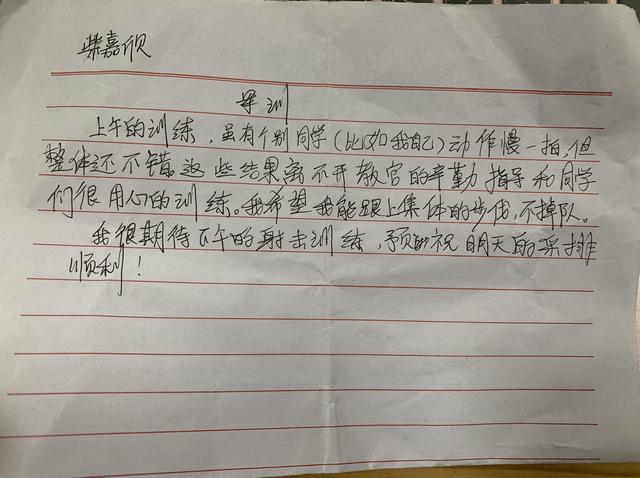 柴嘉欣
军训
上午的训练，虽有个别同学(比如我自己)动作慢一拍，但
整体还不错。这些结果离不开教官的辛勤指导和同学
们很用心的训练。我希望我能跟上集体的步伐，不掉队。
我很期待下午的射击训练，预祝明天的采排
顺利！